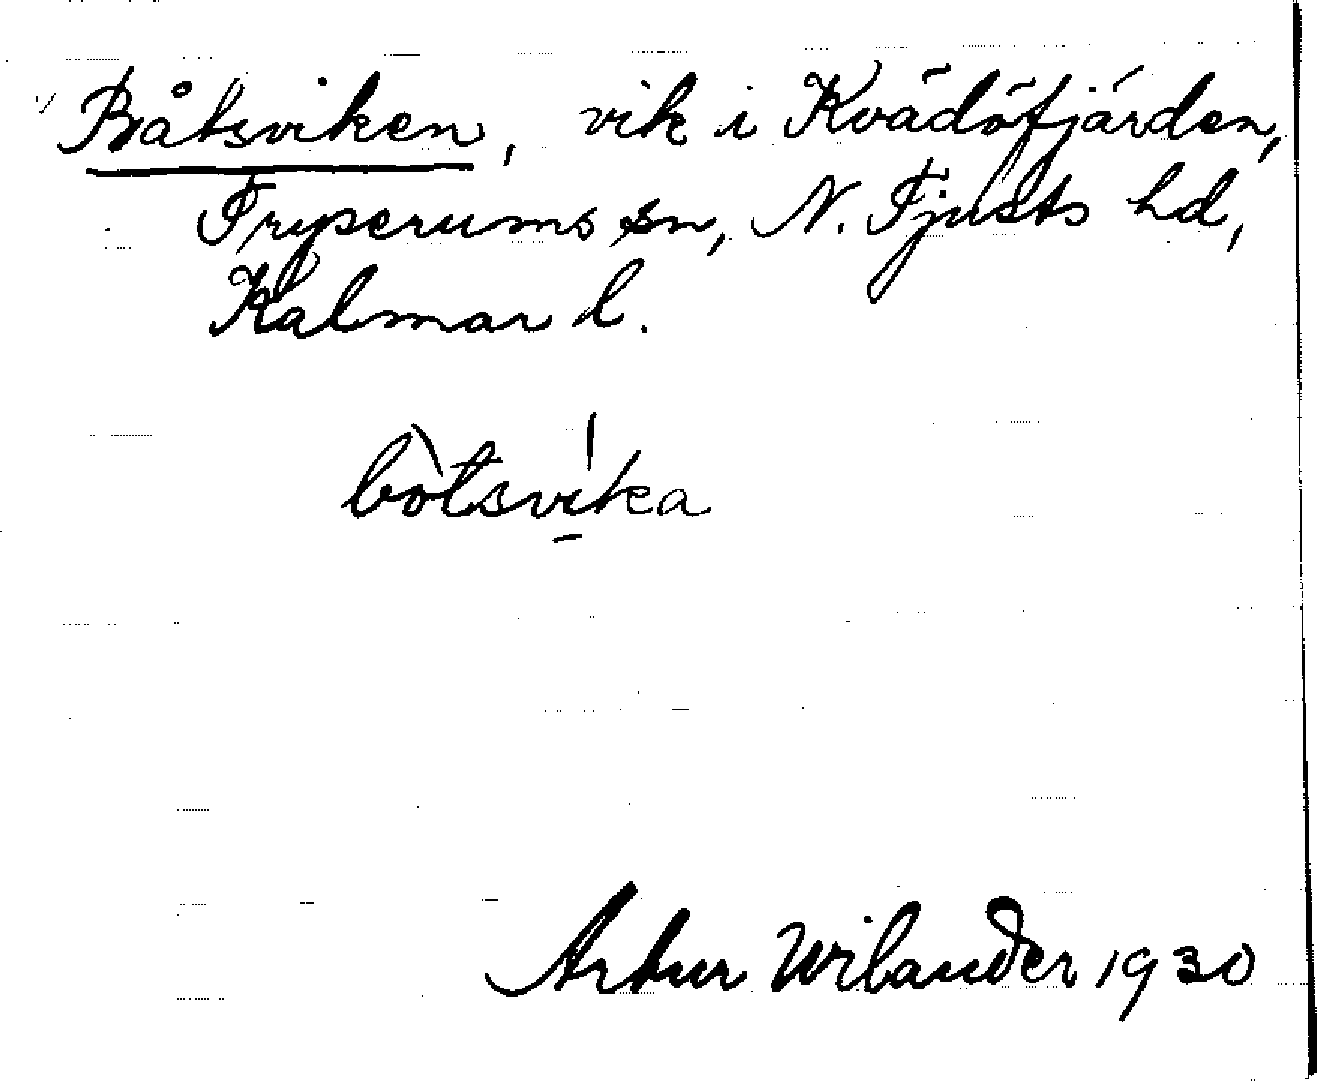 Båtsviken, vik i Kvädöfjärden,
Tryserums sn, N. Tjusts hd,
Kalmar l.
bòtsvíka
Artur Wilander 1930